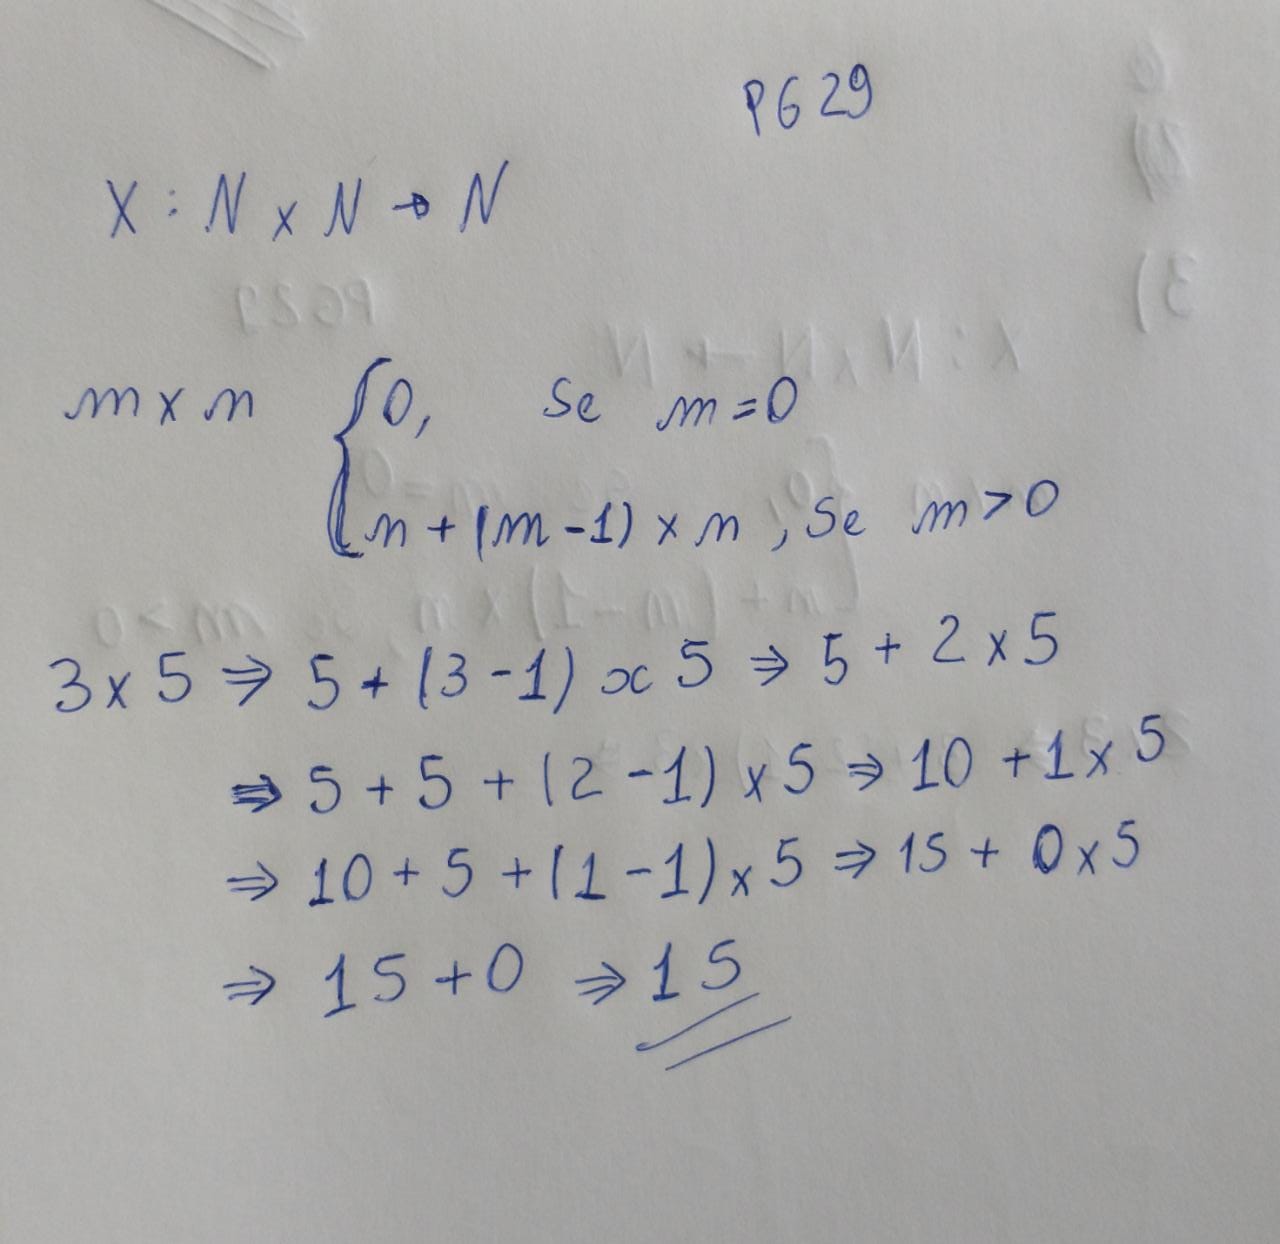 PG 29
X : N x N → N
m x n { 0, Se m = 0
n + (m - 1) x n , Se m > 0
3 x 5 ⇒ 5 + (3 - 1) x 5 ⇒ 5 + 2 x 5
⇒ 5 + 5 + (2 - 1) x 5 ⇒ 10 + 1 x 5
⇒ 10 + 5 + (1 - 1) x 5 ⇒ 15 + 0 x 5
⇒ 15 + 0 ⇒ 15